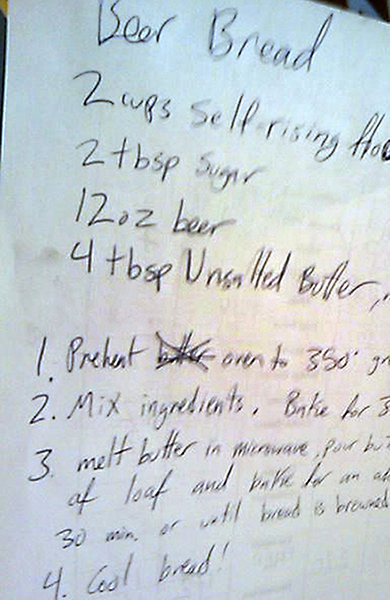 Beer Bread
2 cups Self-rising flo
2 tbsp sugar
12oz beer
4 tbsp Unsalted Butter,
1. Preheat oven to 350° gr
2. Mix ingredients. Bake for 3
3. melt butter in microwave, pour but
of loaf and bake for an ad
30 min. or until bread is browned
4. Cool bread!